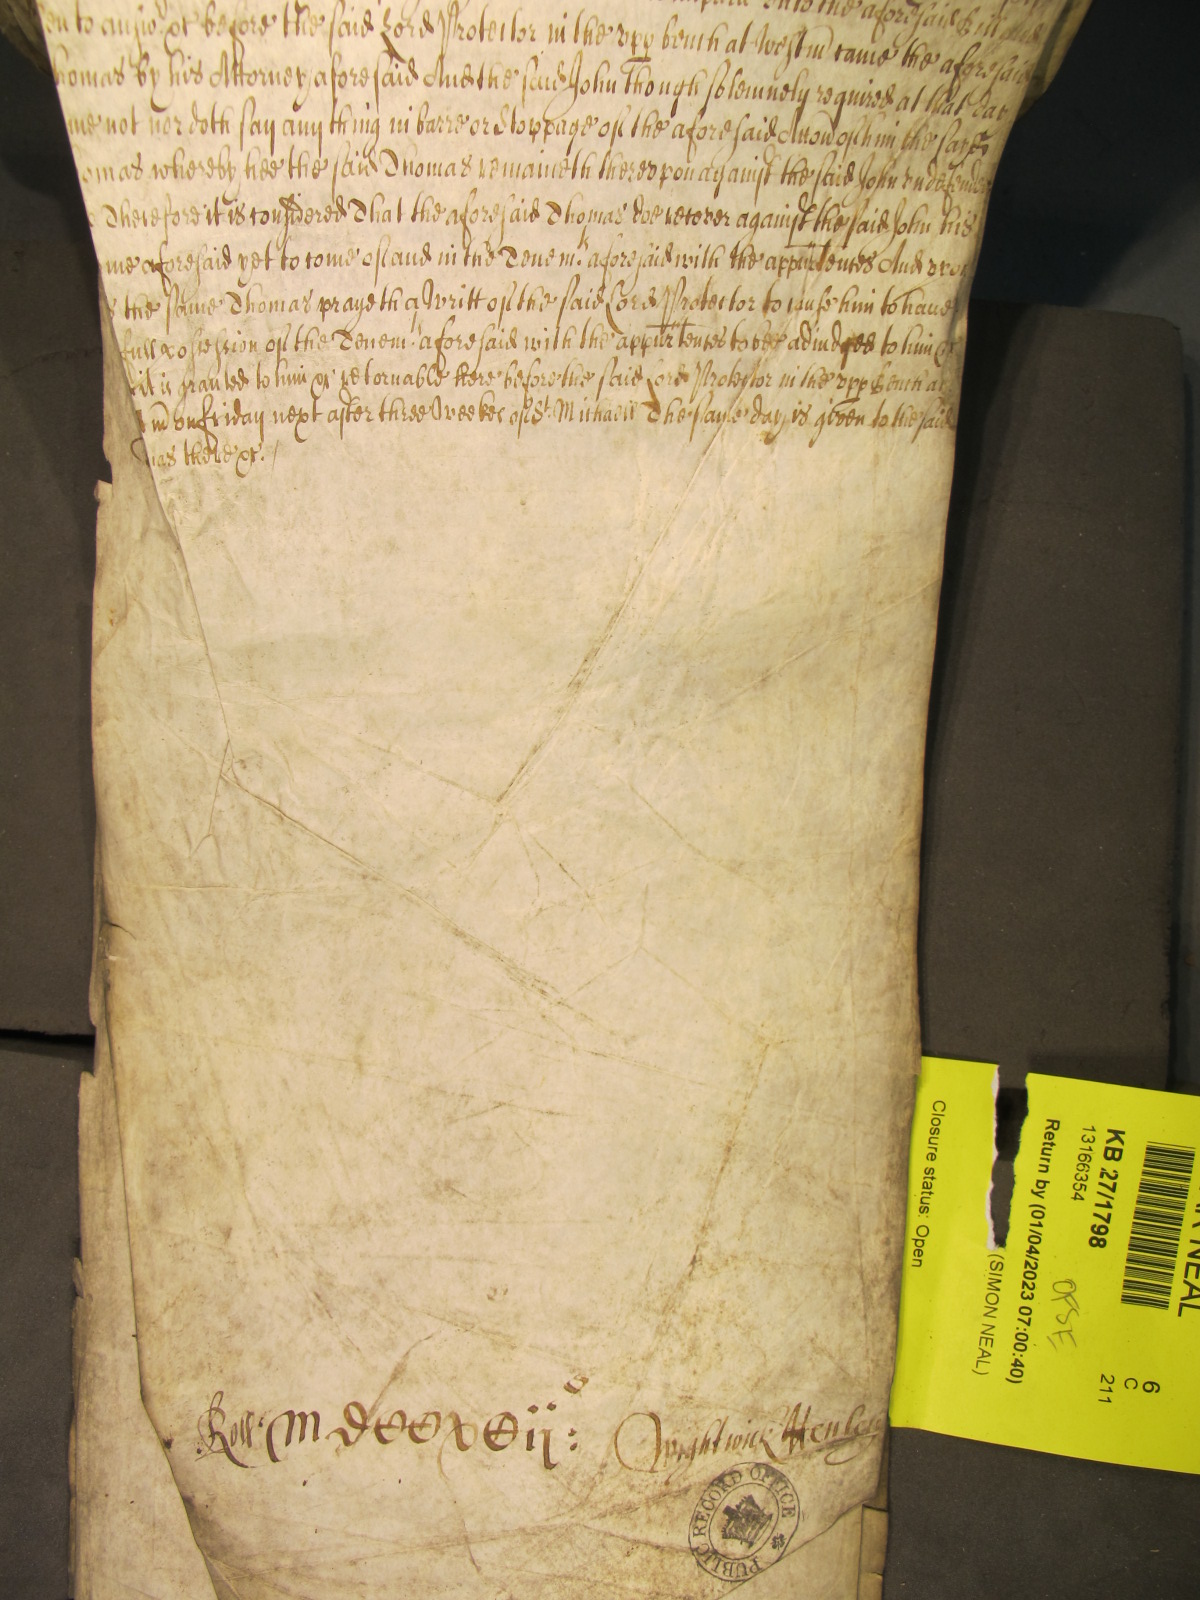 unto the aforesaid
to answ.r &c before the said Lord Protector in the upp bench at Westm came the aforesaid
homas by his Attorney aforesaid And the said John though solemnely required at that day
me not nor doth say any thing in barre or Stoppage of the aforesaid Accon of him the said
omas whereby hee the said Thomas remaineth thereupon against the said John undefended
Therefore it is considered That the aforesaid Thomas doe recover against the said John his
me aforesaid yet to come of and in the Tenem.ts aforesaid with the appurtences And upon
the same Thomas prayeth a Writt of the said Lord Protector to cause him to have
full possession of the Tenem.ts aforesaid with the appurtences to bee adiudged to him &c
it is granted to him &c retornable here before the said Lord Protector in the upp bench at
m on Friday next after three Weekes of St. Michaell The same day is given to the said
mas there &c./
Roll MDCCXCii: Wightwick Henley
PUBLIC RECORD OFFICE
NEAL
KB 27/1798
13166354
Return by (01/04/2023 07:00:40)
(SIMON NEAL)
Closure status: Open
6
C
211